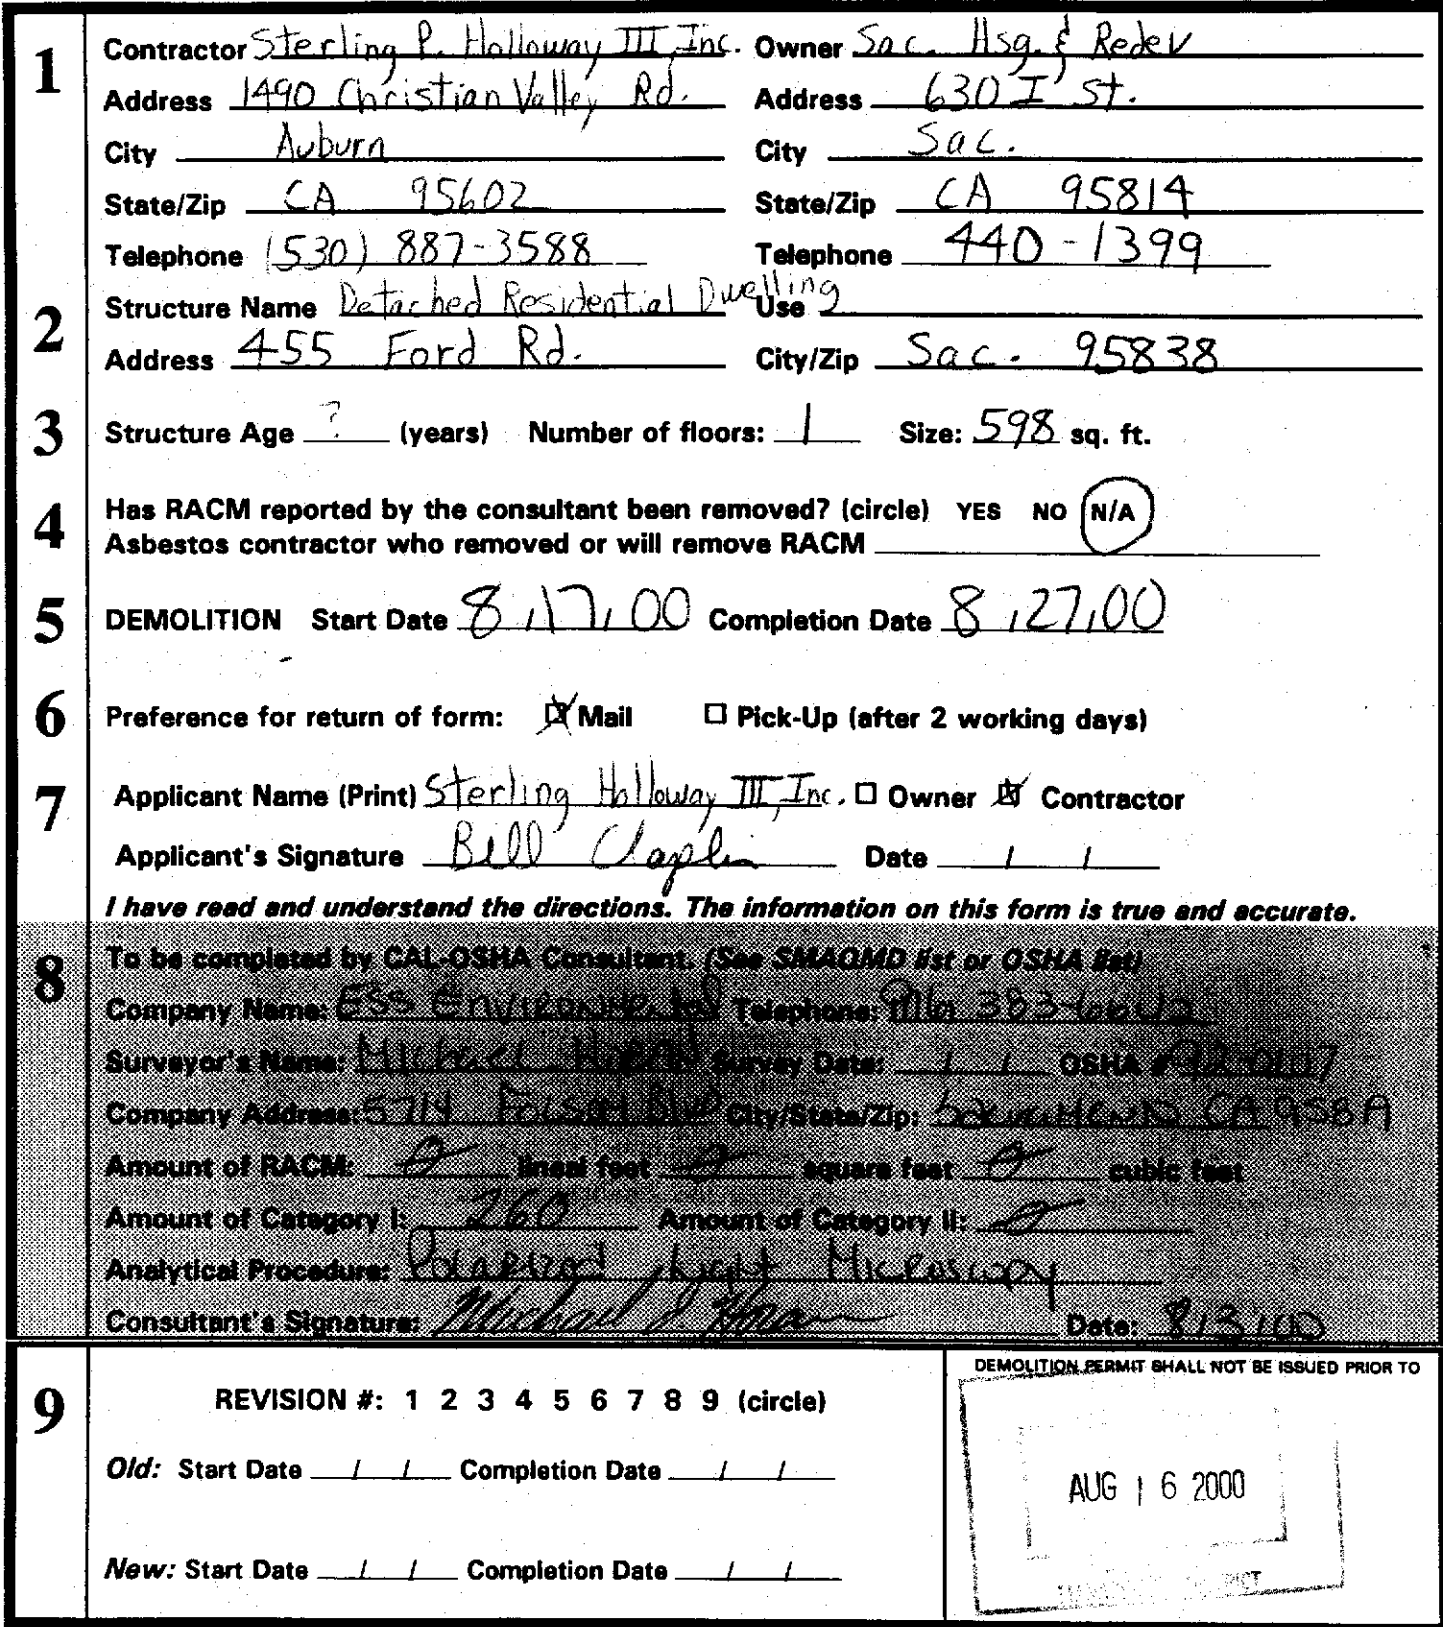 1
Contractor Sterling P. Holloway III, Inc. Owner Sac. Hsg. & Redev
Address 1490 Christian Valley Rd. Address 630 I St.
City Auburn City Sac.
State/Zip CA 95602 State/Zip CA 95814
Telephone (530) 887-3588 Telephone 440-1399
2
Structure Name Detached Residential Dwelling Use
Address 455 Ford Rd. City/Zip Sac. 95838
3
Structure Age ? (years) Number of floors: 1 Size: 598 sq. ft.
4
Has RACM reported by the consultant been removed? (circle) YES NO N/A
Asbestos contractor who removed or will remove RACM
5
DEMOLITION Start Date 8/17/00 Completion Date 8/27/00
6
Preference for return of form: Mail Pick-Up (after 2 working days)
7
Applicant Name (Print) Sterling Holloway III, Inc. Owner Contractor
Applicant's Signature Bill Claplin Date / /
I have read and understand the directions. The information on this form is true and accurate.
8
To be completed by CAL-OSHA Consultant. (See SMAQMD list or OSHA list)
Company Name: ESS Environmental Telephone: 916 383-6642
Surveyor's Name: Michael Survey Date: / / OSHA # 92-0107
Company Address: 5714 Folsom Blvd City/State/Zip: Sacramento CA
Amount of RACM: 0 lineal feet 0 square feet 0 cubic feet
Amount of Category I: 260 Amount of Category II: 0
Analytical Procedure: Polarized Light Microscopy
Consultant's Signature: Michael Date: 8/3/00
9
REVISION #: 1 2 3 4 5 6 7 8 9 (circle)
Old: Start Date / / Completion Date / /
New: Start Date / / Completion Date / /
DEMOLITION PERMIT SHALL NOT BE ISSUED PRIOR TO
AUG 16 2000